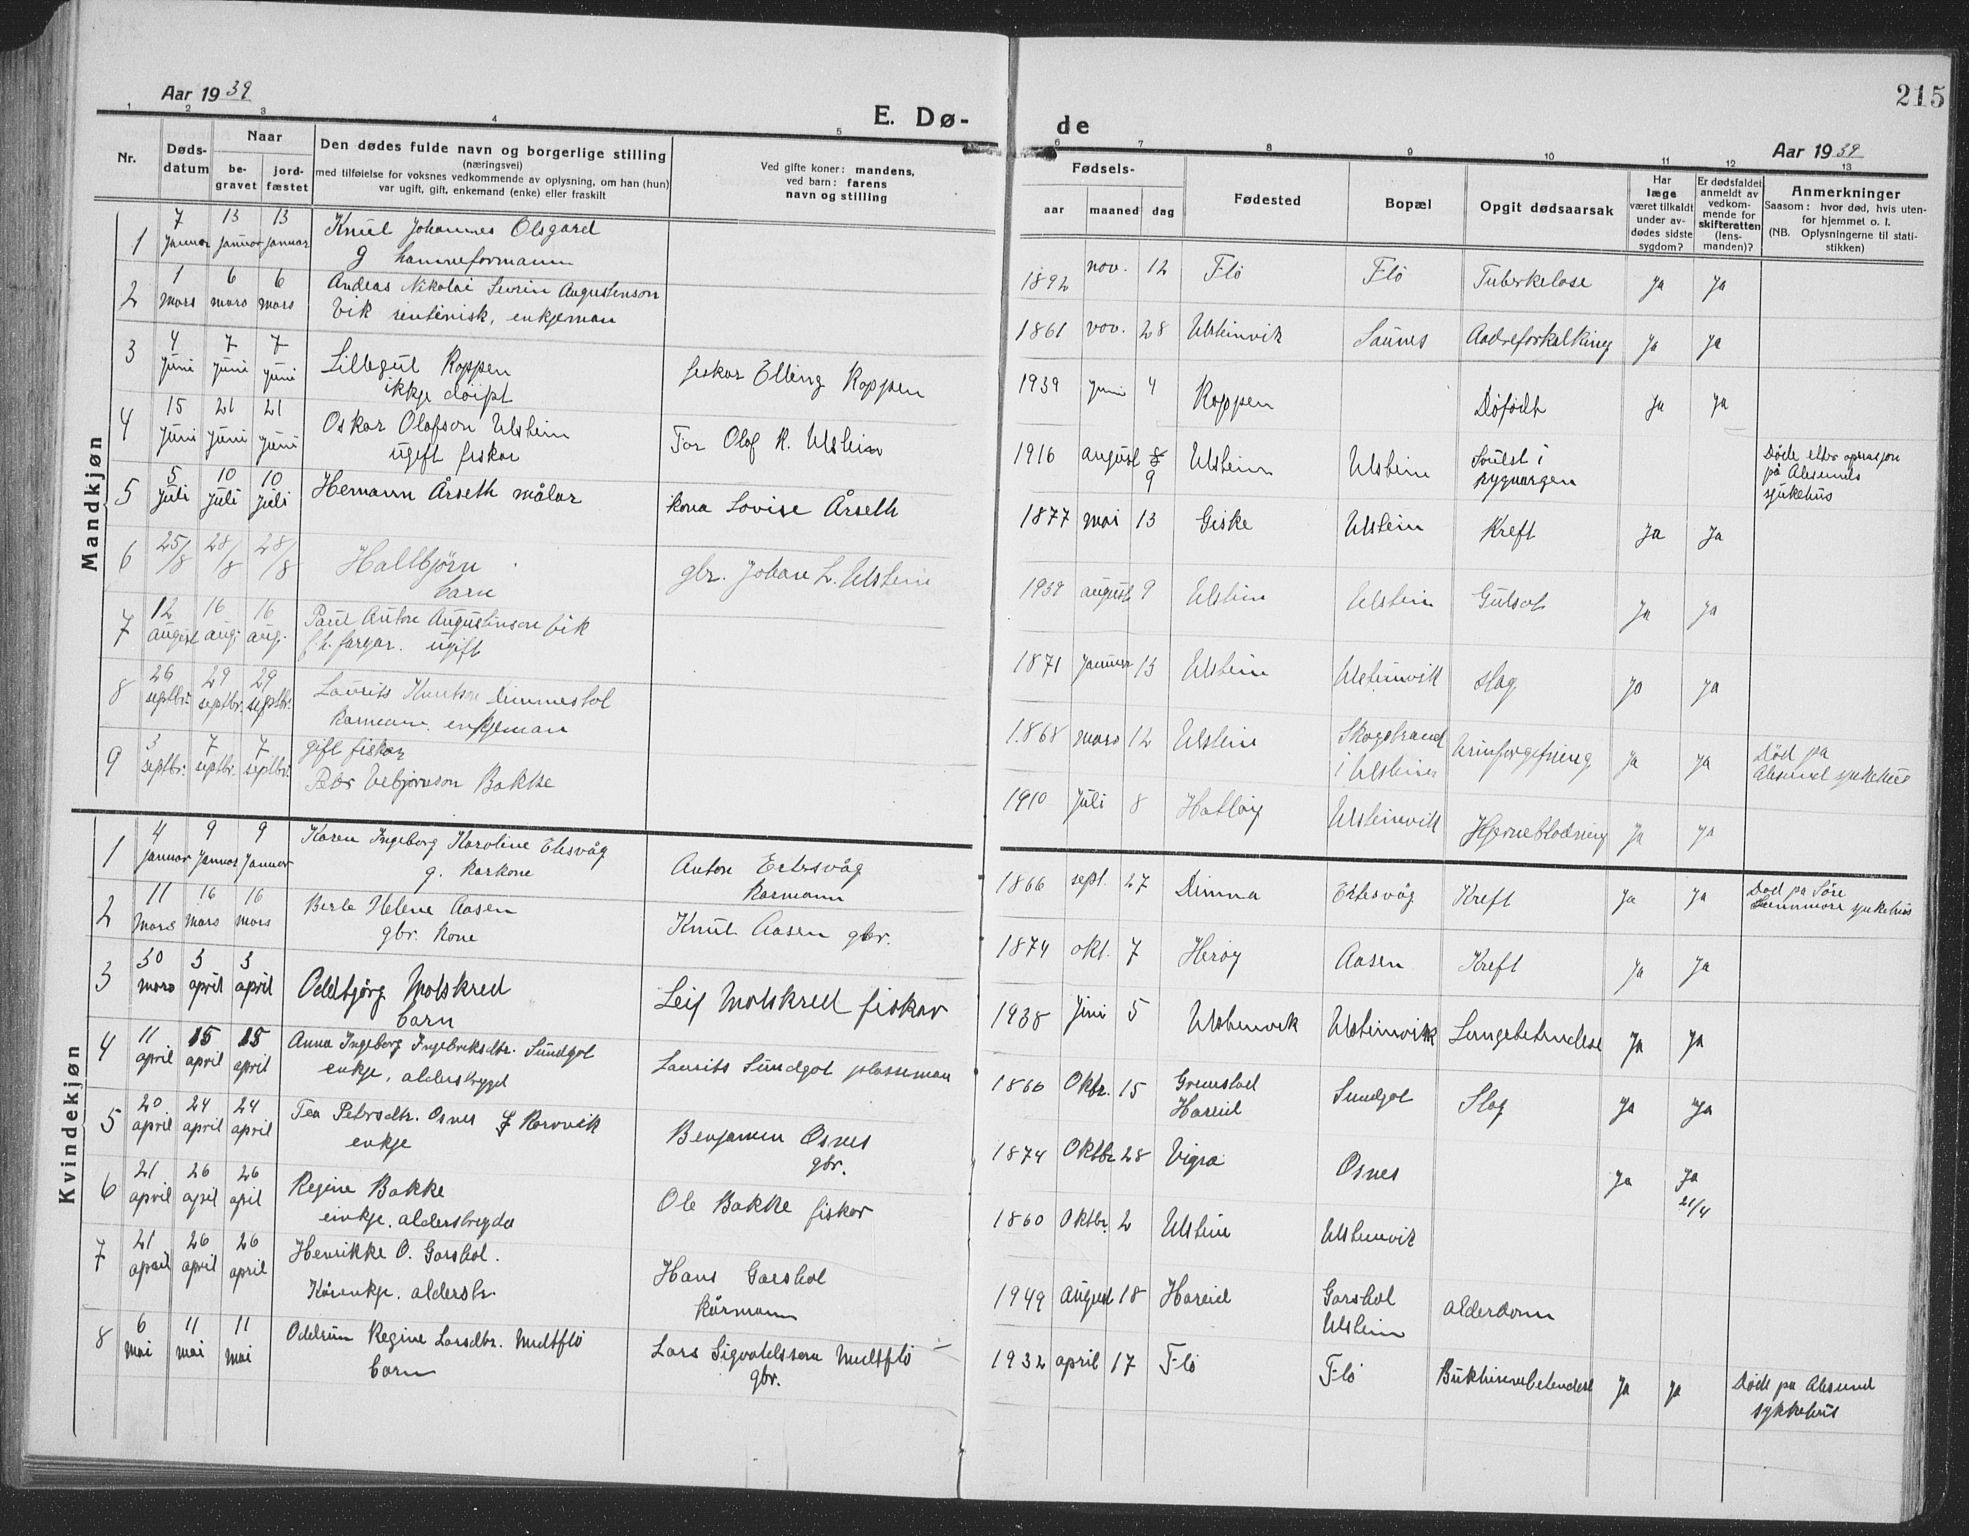 Aar 1939
E. Dø-
Nr.
Døds-
datum
Naar
be-
gravet
jord-
fæstet
Den dødes fulde navn og borgerlige stilling
(næringsvei)
med tilføielse for voksnes vedkommende av oplysning, om han (hun)
var ugift, gift, enkemand (enke) eller fraskilt
Ved gifte koner: mandens,
ved barn: farens
navn og stilling
Mandkjøn
1 7 Januar 13 Januar 13 Januar
Knut Johannes Olsgard
g
2 1 mars 6 mars 6 mars
Andeas Nikolai Sevrin Augustinson
Vik rentenisk, enkjeman
3 4 Juni 7 Juni 7 Juni
Lillegut Roppen
ikkje døipt
fiskar Elling Roppen
4 15 Juni 21 Juni 21 Juni
Oskar Olafson Ulstein
ugift fiskar
Far Olaf R. Ulstein
5 5 Juli 10 Juli 10 Juli
Hemann Årseth målar
kona Lovise Årseth
6 25/8 28/8 28/8
Hallbjørn
barn
gbr. Johan L. Ulstein
7 12 august 16 aug. 16 aug.
Paul Anton Augustinson Vik
f.h. fargar. ugift
8 26 septbr. 29 septbr. 29 septbr.
Laurits Knutson Dimmeshol
Karmann. enkjeman
9 3 septbr. 7 septbr. 7 septbr.
gift fiskar
Peter Vebjørnson Bakke
Kvindekjøn
1 4 Januar 9 Januar 9 Januar
Karen Ingeborg Karoline Eltesvåg
g. karkone
Anton Eltesvåg
karmann
2 11 Mars 16 mars 16 mars
Berte Helene Aasen
gbr. kone
Knut Aasen gbr.
3 30 mars 3 april 3 april
Oddbjørg Molskred
barn
Leif Molskred fiskar
4 11 april 15 april 15 april
Anna Ingeborg Ingebriksdtr. Sundgot
enkje, alderstrygd
Laurits Sundgot plassman
5 20 april 24 april 24 april
Tea Petersdtr. Osnes f Rørvik
enkje
Benjamin Osnes
gbr.
6 21 april 26 april 26 april
Regine Bakke
einkje, alderstrygda
Ole Bakke fiskar
7 21 april 26 april 26 april
Henrikke O. Garshol.
Kårenkje. alderstr.
Hans Garshol
kårmann
8 6 mai 11 mai 11 mai
Oddrun Regine Larsdtr. Mittflø
barn
Lars Sigvaldssen Mittflø
gbr.
215
de
Aar 1939
Fødsels-
aar
maaned
dag
Fødested
Bopæl
Opgit dødsaarsak
Har
læge
været tilkaldt
under av-
dødes sidste
sygdom?
Er dødsfaldet
anmeldt av
vedkom-
mende for
skifteretten
(lens-
manden)?
Anmerkninger
Saasom: hvor død, hvis uten-
for hjemmet o. l.
(NB. Oplysningerne til stati-
stikken)
1892 nov. 12 Flø Flø Tuberkelose Ja Ja
1861 nov. 28 Ulsteinvik Saunes Aadreforkalking Ja Ja
1939 Juni 4 Roppen Døfødt Ja Ja
1916 august 9 Ulstein Ulstein Svulst i
rygmargen
Døde etter oprasjon
på Alesunds
sjukehus
1877 mai 13 Giske Ulstein Kreft Ja Ja
1939 august 9 Ulstein Ulstein Gulsot Ja Ja
1871 Januar 13 Ulstein Ulsteinvik slag Ja Ja
1868 mars 12 Ulstein Skogstrand
i Ulstein
Urinforgiftning Ja Ja
Død på
Alesund sjukehus
1910 Juli 8 Hatløy Ulsteinvik Hjerneblødning Ja Ja
1866 sept. 27 Dimna Eltesvåg Kreft Ja Ja
Død på Søre
Sunnmøre sjukehus
1874 okt. 7 Herøy Aasen Kreft Ja Ja
1938 Juni 5 Ulsteinvik Ulsteinvik Lungebetendese Ja Ja
1866 Oktbr. 15 Grimstad
Hareid
Sundgot Slag Ja Ja
1874 Oktbr 28 Vigra Osnes Ja Ja
21/4
1860 Oktbr. 2 Ulstein Ulsteinvik
1949 August 18 Hareid Garshol
Ulstein
alderdom
1932 april 17 Flø Flø Bukhinnebetendese Ja Ja
Døde på Alesund
sykkehus